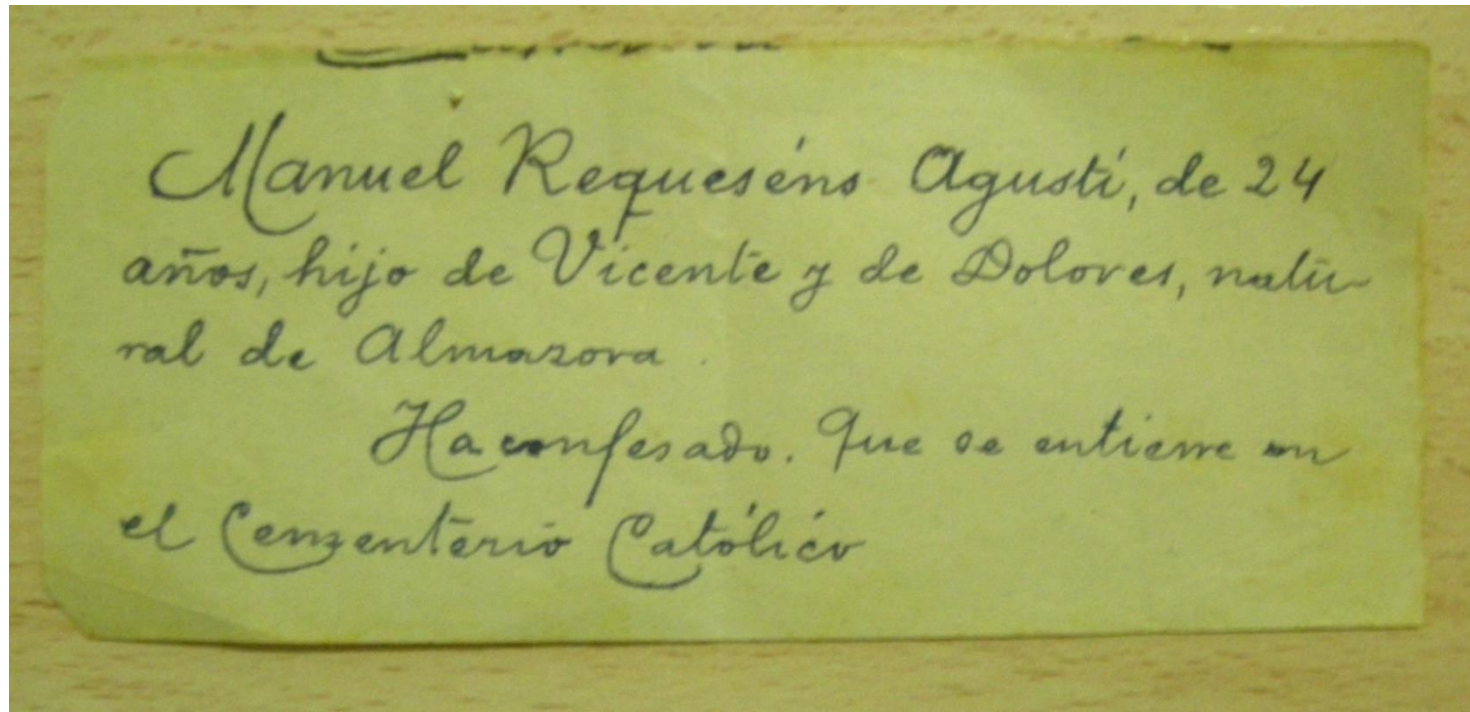 Manuel Requeséns Agustí, de 24
años, hijo de Vicente y de Dolores, natu-
ral de Almazora.
Ha confesado. Que se entierre en
el Cementerio Católico